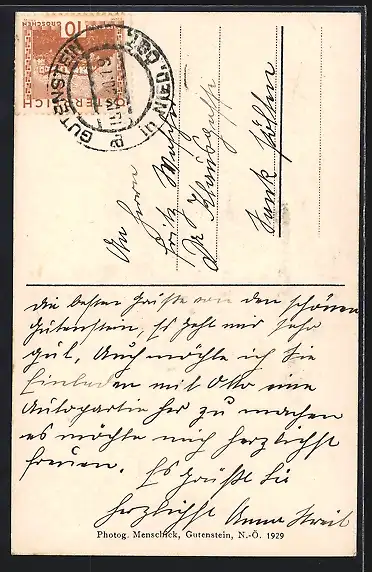 10
GROSCHEN
ÖSTERREICH
GUTENSTEIN
An Herrn
Fritz
Dr
die besten Grüße von den schönen
Gutenstein, Es geht mir sehr
gut, Auch möchte ich Sie
Einladen mit Otto eine
Autopartie her zu machen
es möchte mich herzlichst
freuen. Es grüßt Sie
herzlichst Anna
Photog. Menschick, Gutenstein, N.-Ö. 1929